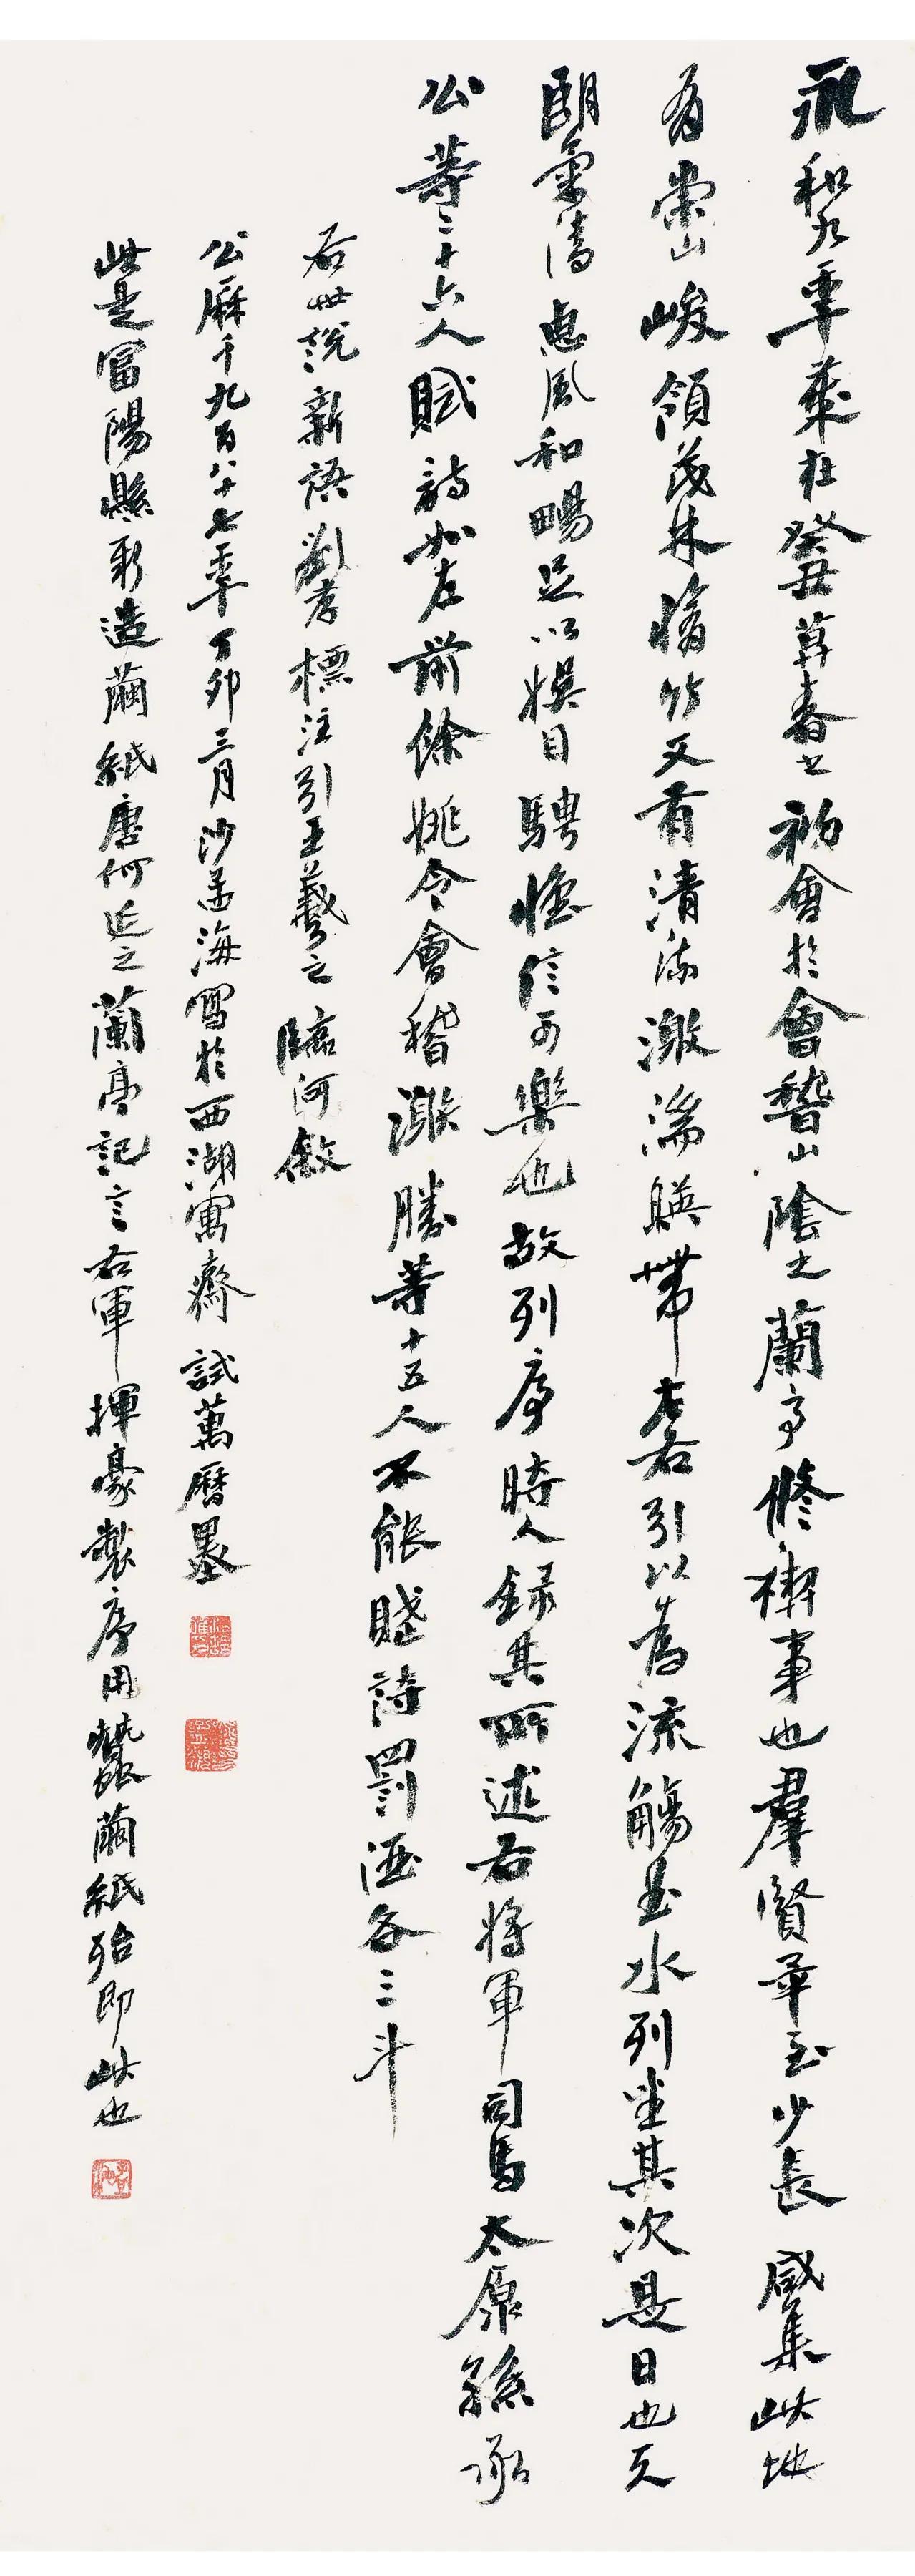 永和九年歲在癸丑莫春之初會於會稽山陰之蘭亭修禊事也羣賢畢至少長咸集此地
有崇山峻領茂林脩竹又有清流激湍映帶左右引以為流觴曲水列坐其次是日也天
朗氣清惠風和暢足以娛目騁懷信可樂也故列序時人錄其所述右將軍司馬太原孫承
公等二十六人賦詩如左前餘姚令會稽謝勝等十五人不能賦詩罰酒各三斗
右世說新語劉孝標注引王羲之臨河敘
公曆千九百八十七年丁卯三月沙孟海寫於西湖寓齋試萬曆墨
此是富陽縣新造繭紙唐何延之蘭亭記言右軍揮豪製序用蠶繭紙殆即此也